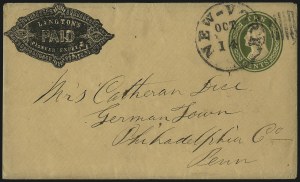 LANGTON'S
PAID
PIONEER EXPRESS
NEW-Y
OCT
1
TEN
CENTS
Mrs Catheran Dice
German Town
Philadelphia Co
Penn